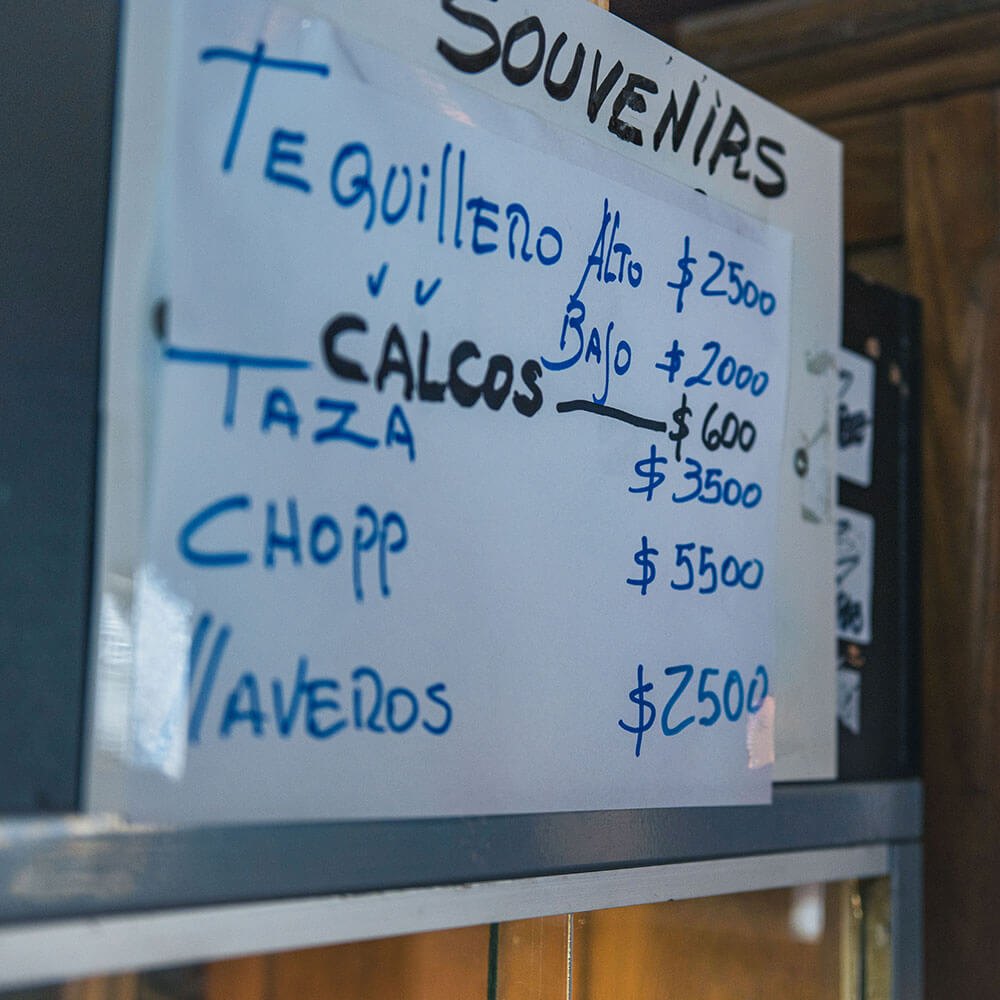 SOUVENiRS
TEQUillERO Alto $2500
BAJO $2000
CALCOS — $600
TAZA $3500
CHOPP $5500
llAVEROS $2500